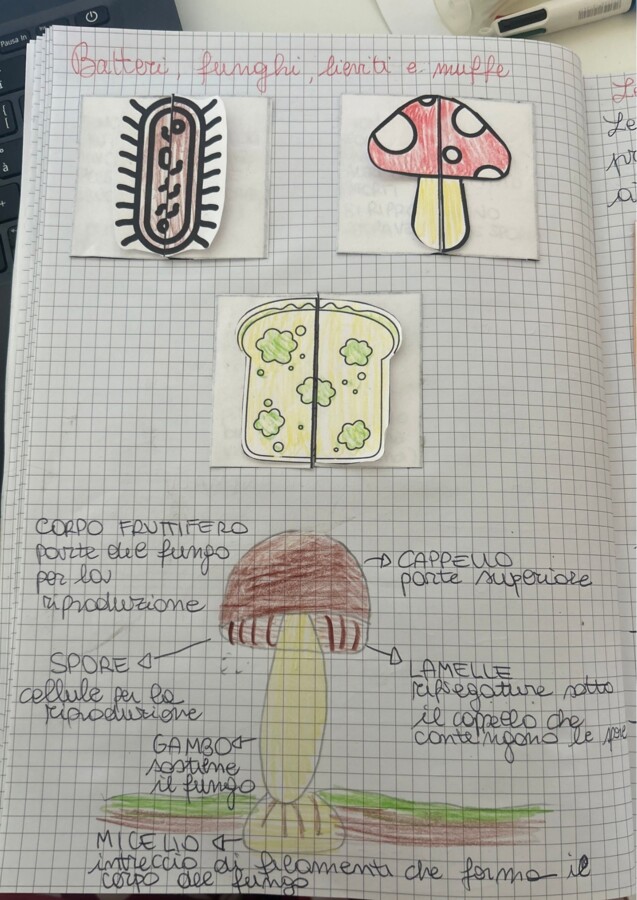 Batteri, funghi, lieviti e muffe
CORPO FRUTTIFERO
parte del fungo
per la
riproduzione
CAPPELLO
parte superiore
SPORE
cellule per la
riproduzione
LAMELLE
ripiegature sotto
il cappello che
contengono le spore
GAMBO
sostiene
il fungo
MICELIO
intreccio di filamenti che forma il
corpo del fungo
Pausa
Le